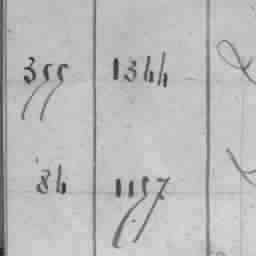 355 1344
84 1157